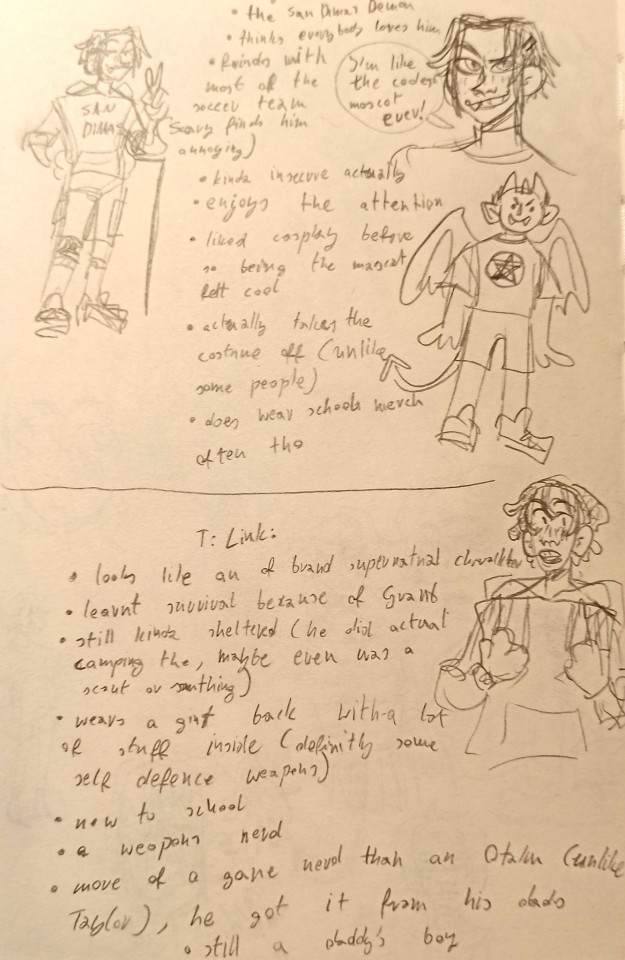 • the San Dimas Demon
• thinks everybody loves him
• Friends with
most of the
soccer team
finds him
annoying)
I'm like
the coolest
mascot
ever!
SAN
DIMAS
• kinda insecure actually
• enjoys the attention
• liked cosplay before
so being the mascot
felt cool
• actually takes the
costume off (unlike
some people)
• does wear schools merch
often tho
T: Link:
• looks like an of brand supernatural
• learnt survival because of Grant
• still kinda sheltered (he did actual
camping tho, maybe even was a
scout or somthing)
• wears a back with a lot
of stuff inside (definitly some
self defence weapons)
• new to school
• a weapons nerd
• more of a game nerd than an Otaku (unlike
Taylor), he got it from his dads
• still a daddy's boy